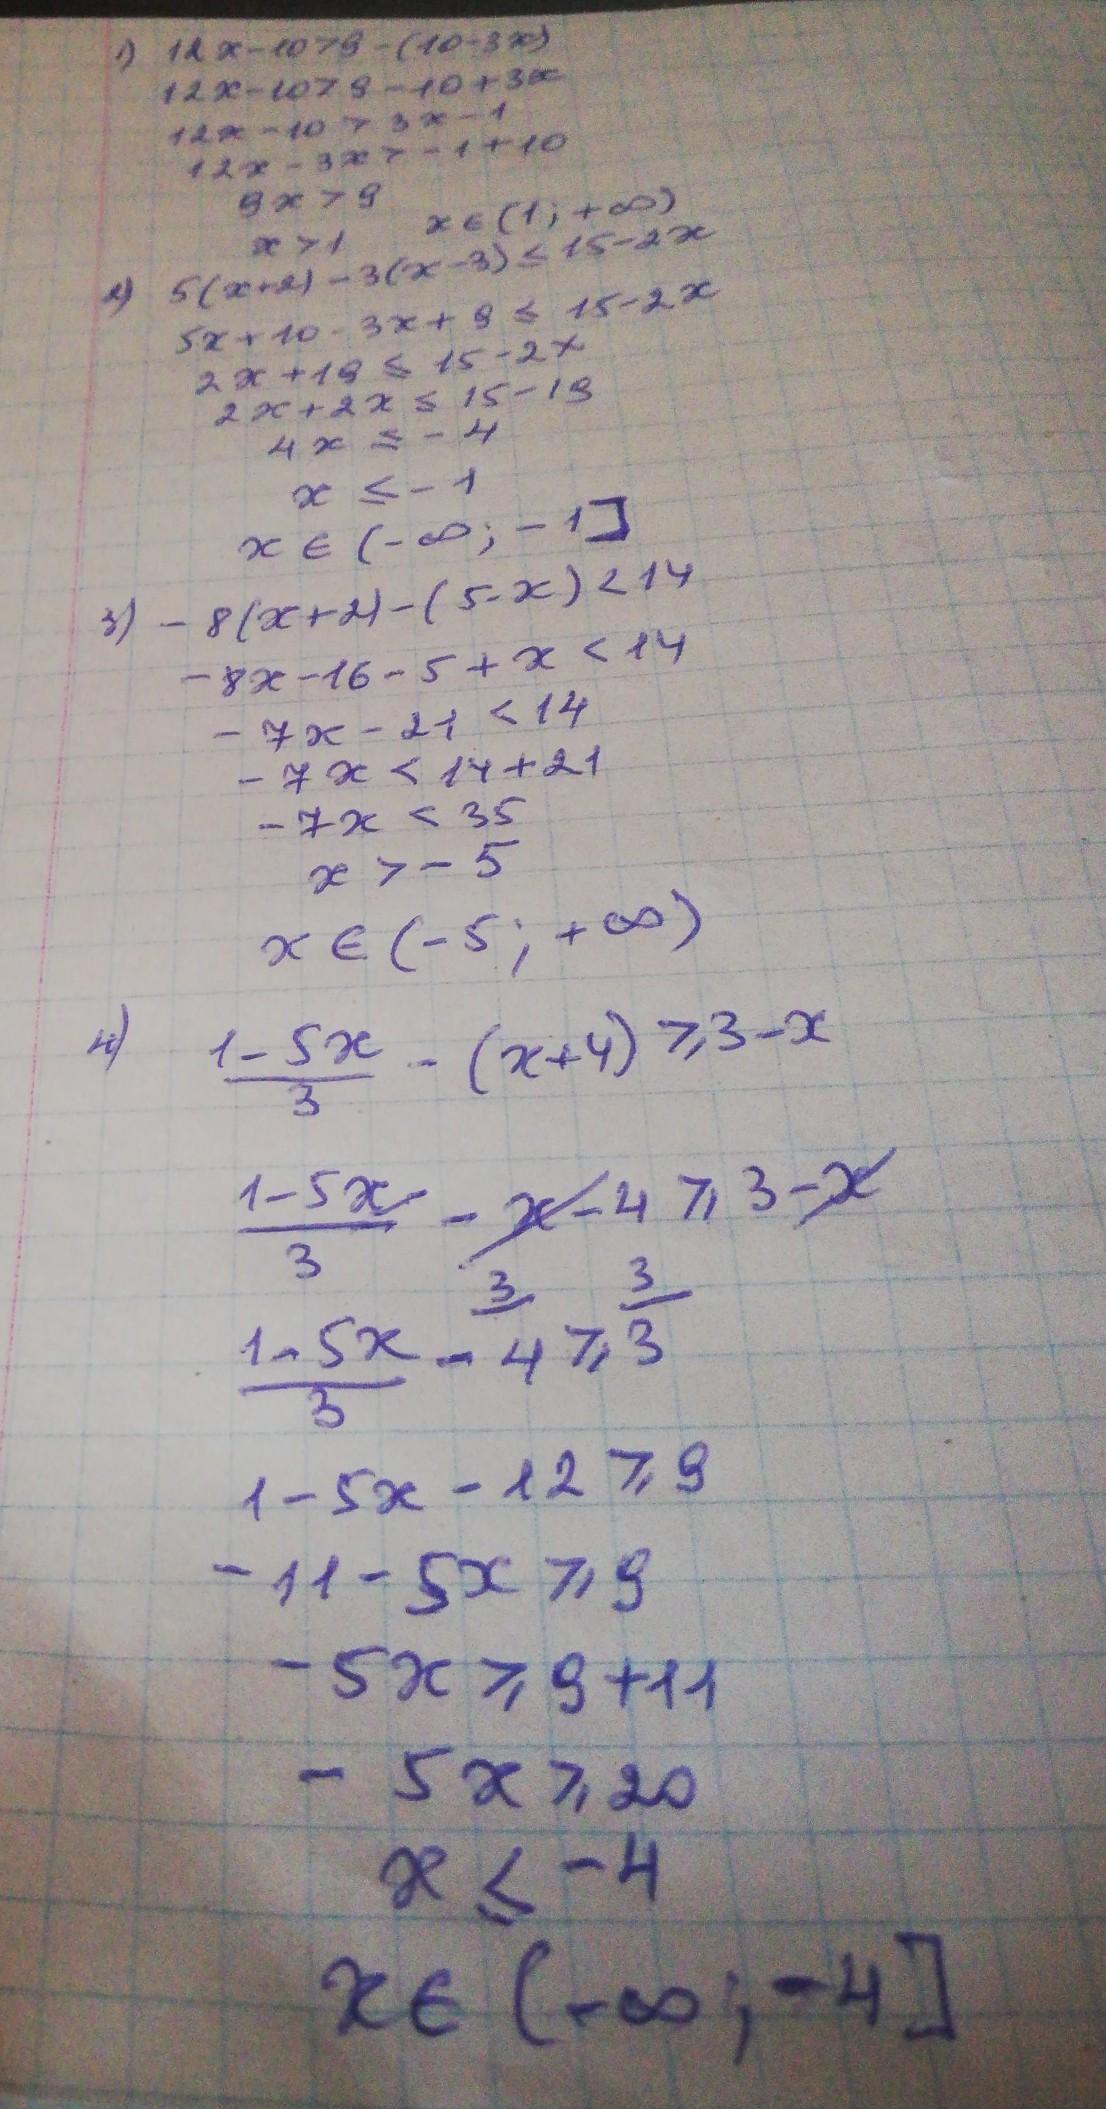 1) 12x-10>9-(10-3x)
12x-10>9-10+3x
12x-10>3x-1
12x-3x>-1+10
9x>9
x>1 x∈(1;+∞)
2) 5(x+2)-3(x-3)≤15-2x
5x+10-3x+9≤15-2x
2x+19≤15-2x
2x+2x≤15-19
4x≤-4
x≤-1
x∈(-∞;-1]
3) -8(x+2)-(5-x)<14
-8x-16-5+x<14
-7x-21<14
-7x<14+21
-7x<35
x>-5
x∈(-5;+∞)
4) 1-5x/3 - (x+4)⩾3-x
1-5x/3 - x-4⩾3-x
3 3
1-5x/3 - 4⩾3
1-5x-12⩾9
-11-5x⩾9
-5x⩾9+11
-5x⩾20
x≤-4
x∈(-∞;-4]